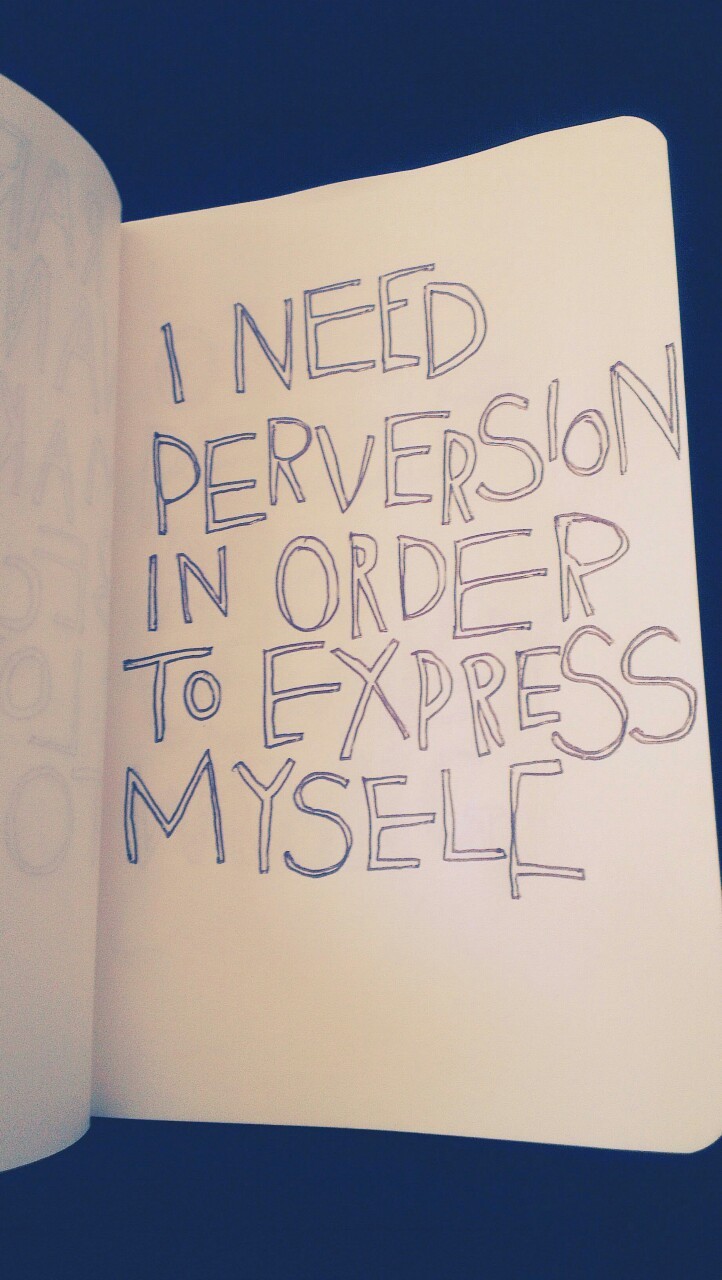 I NEED
PERVERSION
IN ORDER
TO EXPRESS
MYSELF